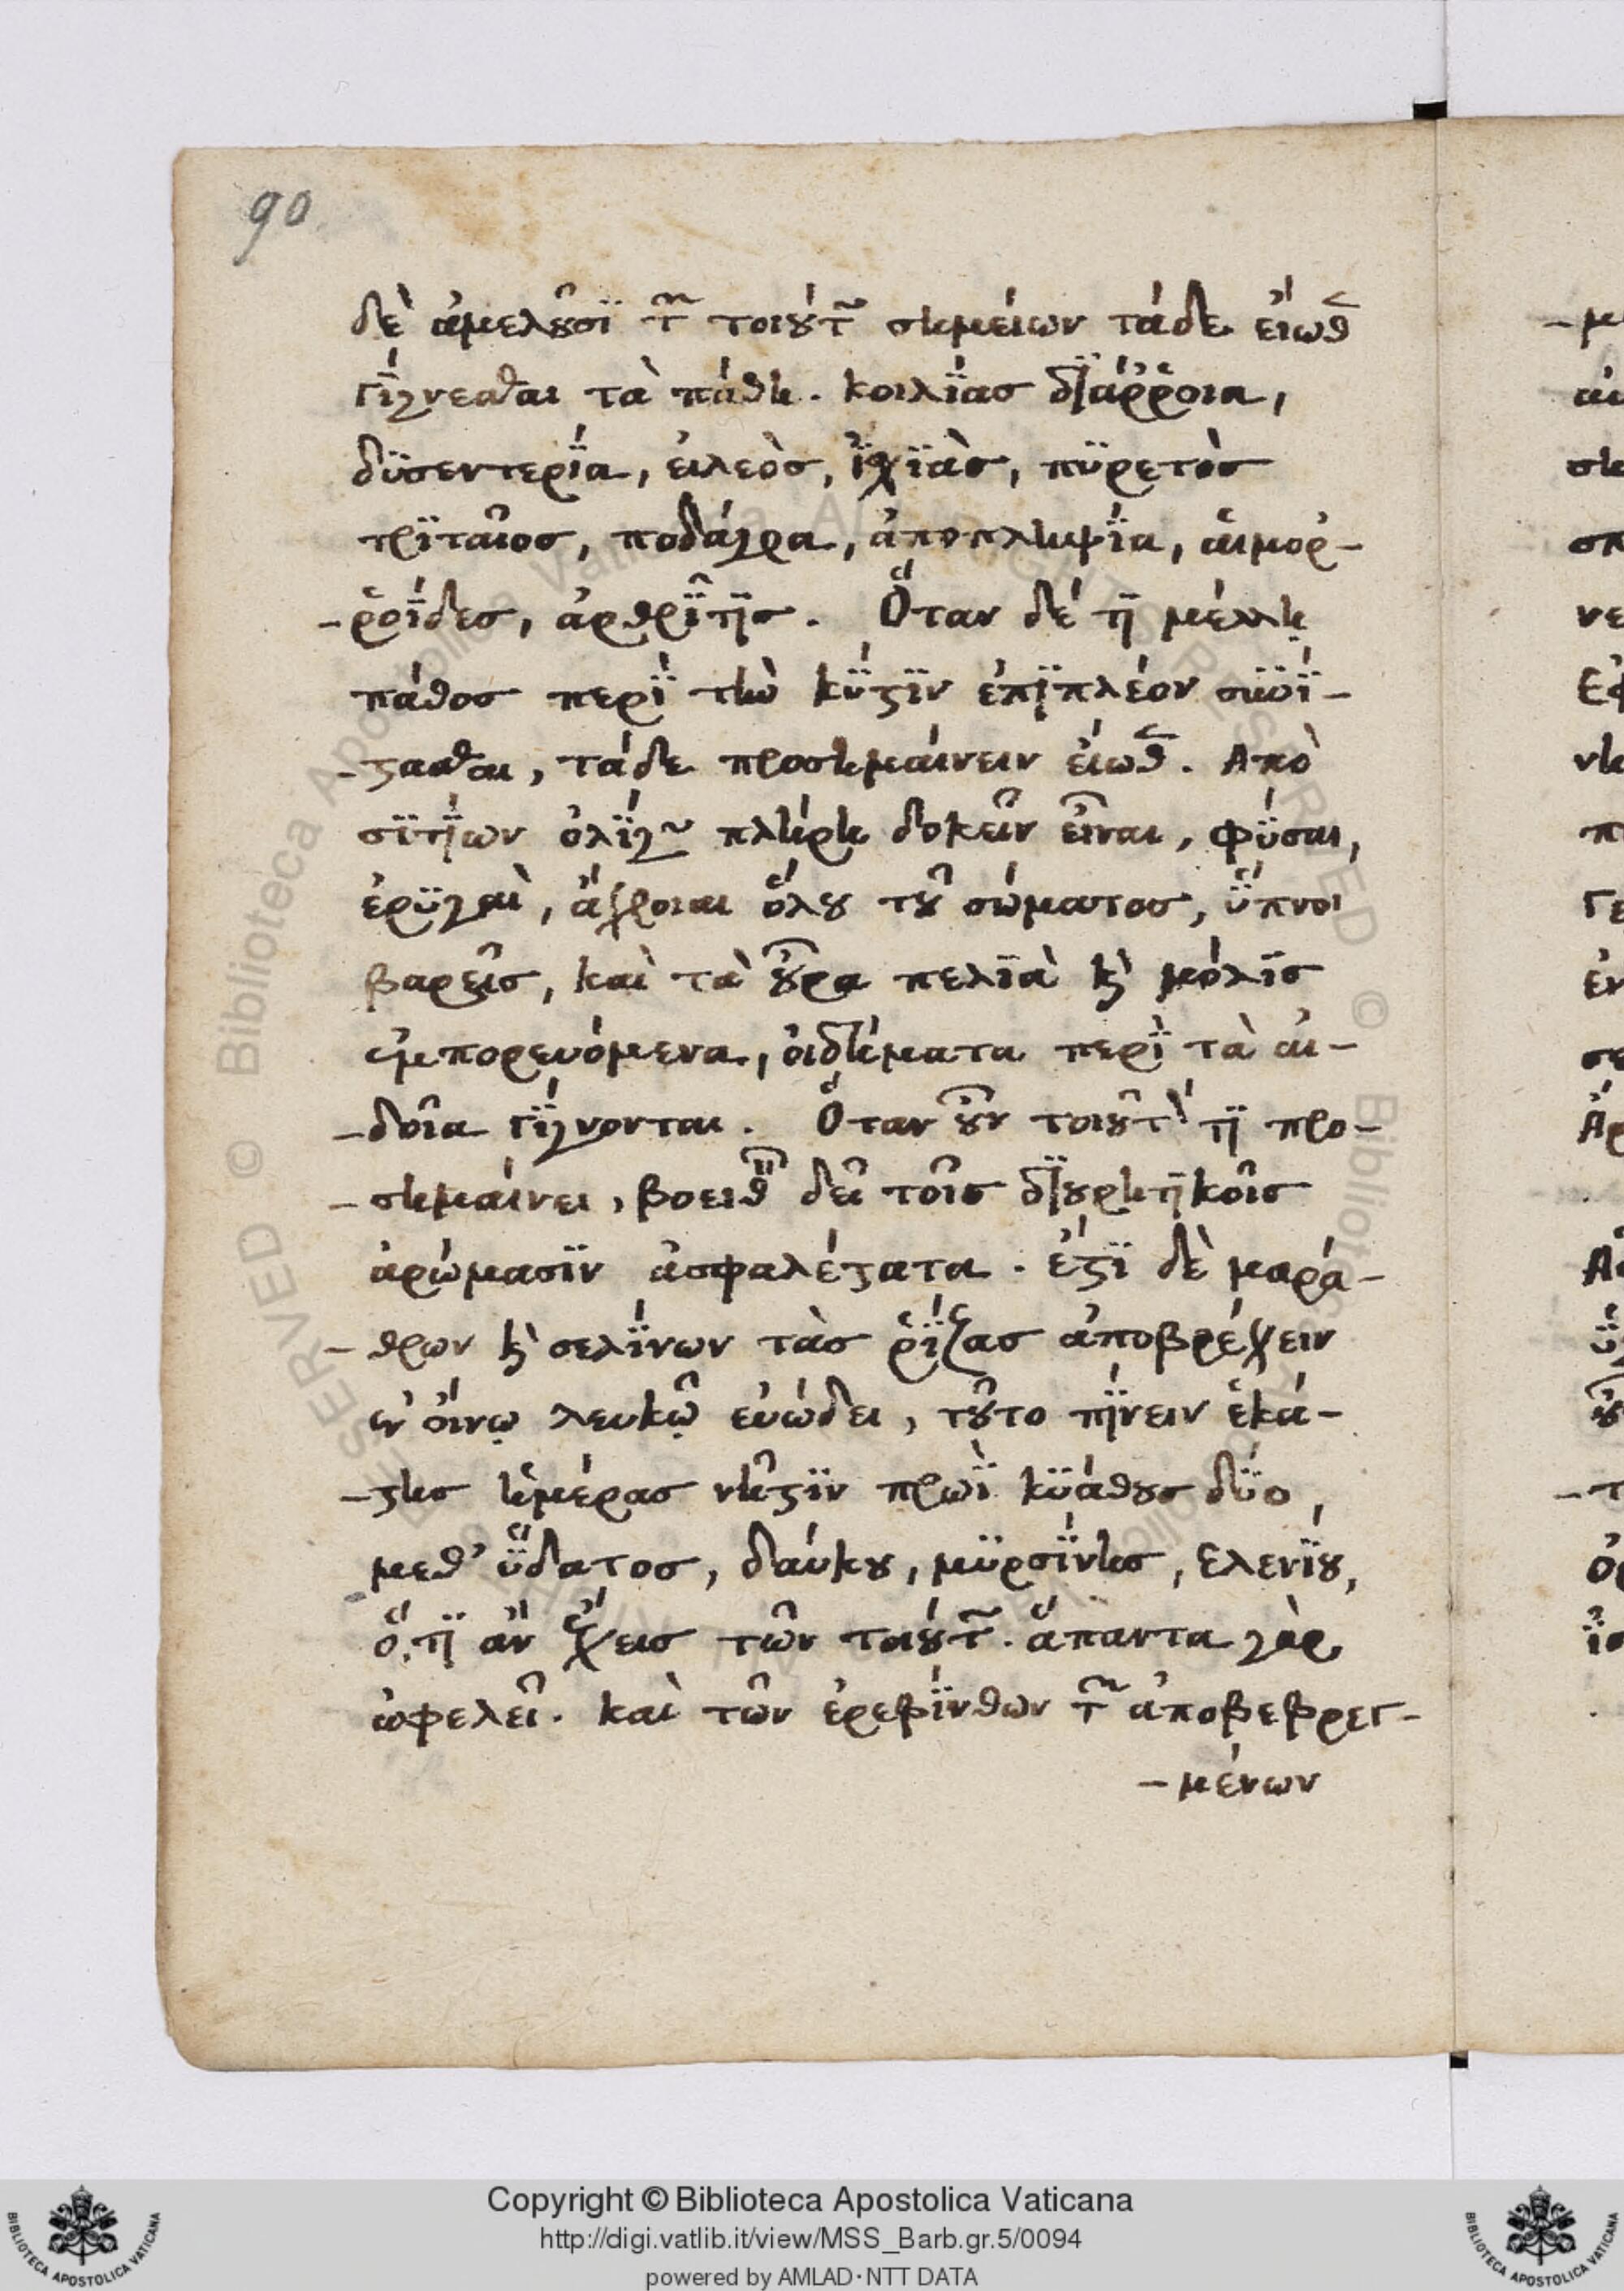 90
δὲ ἀμελοῦσϊ τ῀ τοιούτ῀ σημείων τάδε εἴωθ
γίγνεσθαι τὰ πάθη. κοιλΐας δϊάῤῥοια,
δϋσεντερΐα, εἰλεὸς, ἰσχϊὰς, πϋρετὸς
τρϊταῖος, ποδάγρα, ἀποπληψΐα, αἱμορ-
-ῥοΐδες, ἀρθρῖτϊς. Ὅταν δέ τϊ μέλλῃ
πάθος περὶ τὴν κύστϊν ἐπϊπλέον συνΐ-
-στασθαι, τάδε προσημαίνειν εἴωθ. Ἀπὸ
σϊτΐων ὀλΐγ῀ πλήρη δοκεῖν εἶναι, φύσαι,
ἐρϋγαὶ, ἄχροιαι ὅλου τοῦ σώματος, ὕπνοι
βαρεῖς, καὶ τὰ οὖρα πελϊὰ κ̀ μόλϊς
ἐμπορευόμενα, οἰδήματα περὶ τὰ αἰ-
-δοῖα γίγνονται. Ὅταν οὖν τοιοῦτ̀ τϊ προ-
-σημαίνει, βοειθ῀ δεῖ τοῖς δϊουρητϊκοῖς
ἀρώμασϊν ἀσφαλέστατα. ἔστϊ δὲ μαρά-
-θρων κ̀ σελΐνων τὰς ῥΐζας ἀποβρέχειν
ἐν οἴνῳ λευκῷ εὐώδει, τοῦτο πΐνειν ἑκά-
-στης ἡμέρας νῆστϊν πρωῒ κϋάθους δύο,
μεθ' ὕδατος, δαύκου, μϋρσΐνης, ἑλενΐου,
ὅ,τϊ ἂν ἔχεις τῶν τοιούτ῀. ἅπαντα γὰρ
ὠφελεῖ. καὶ τῶν ἐρεβΐνθων τ῀ ἀποβεβρεγ-
-μένων
Copyright © Biblioteca Apostolica Vaticana
http://digi.vatlib.it/view/MSS_Barb.gr.5/0094
powered by AMLAD·NTT DATA